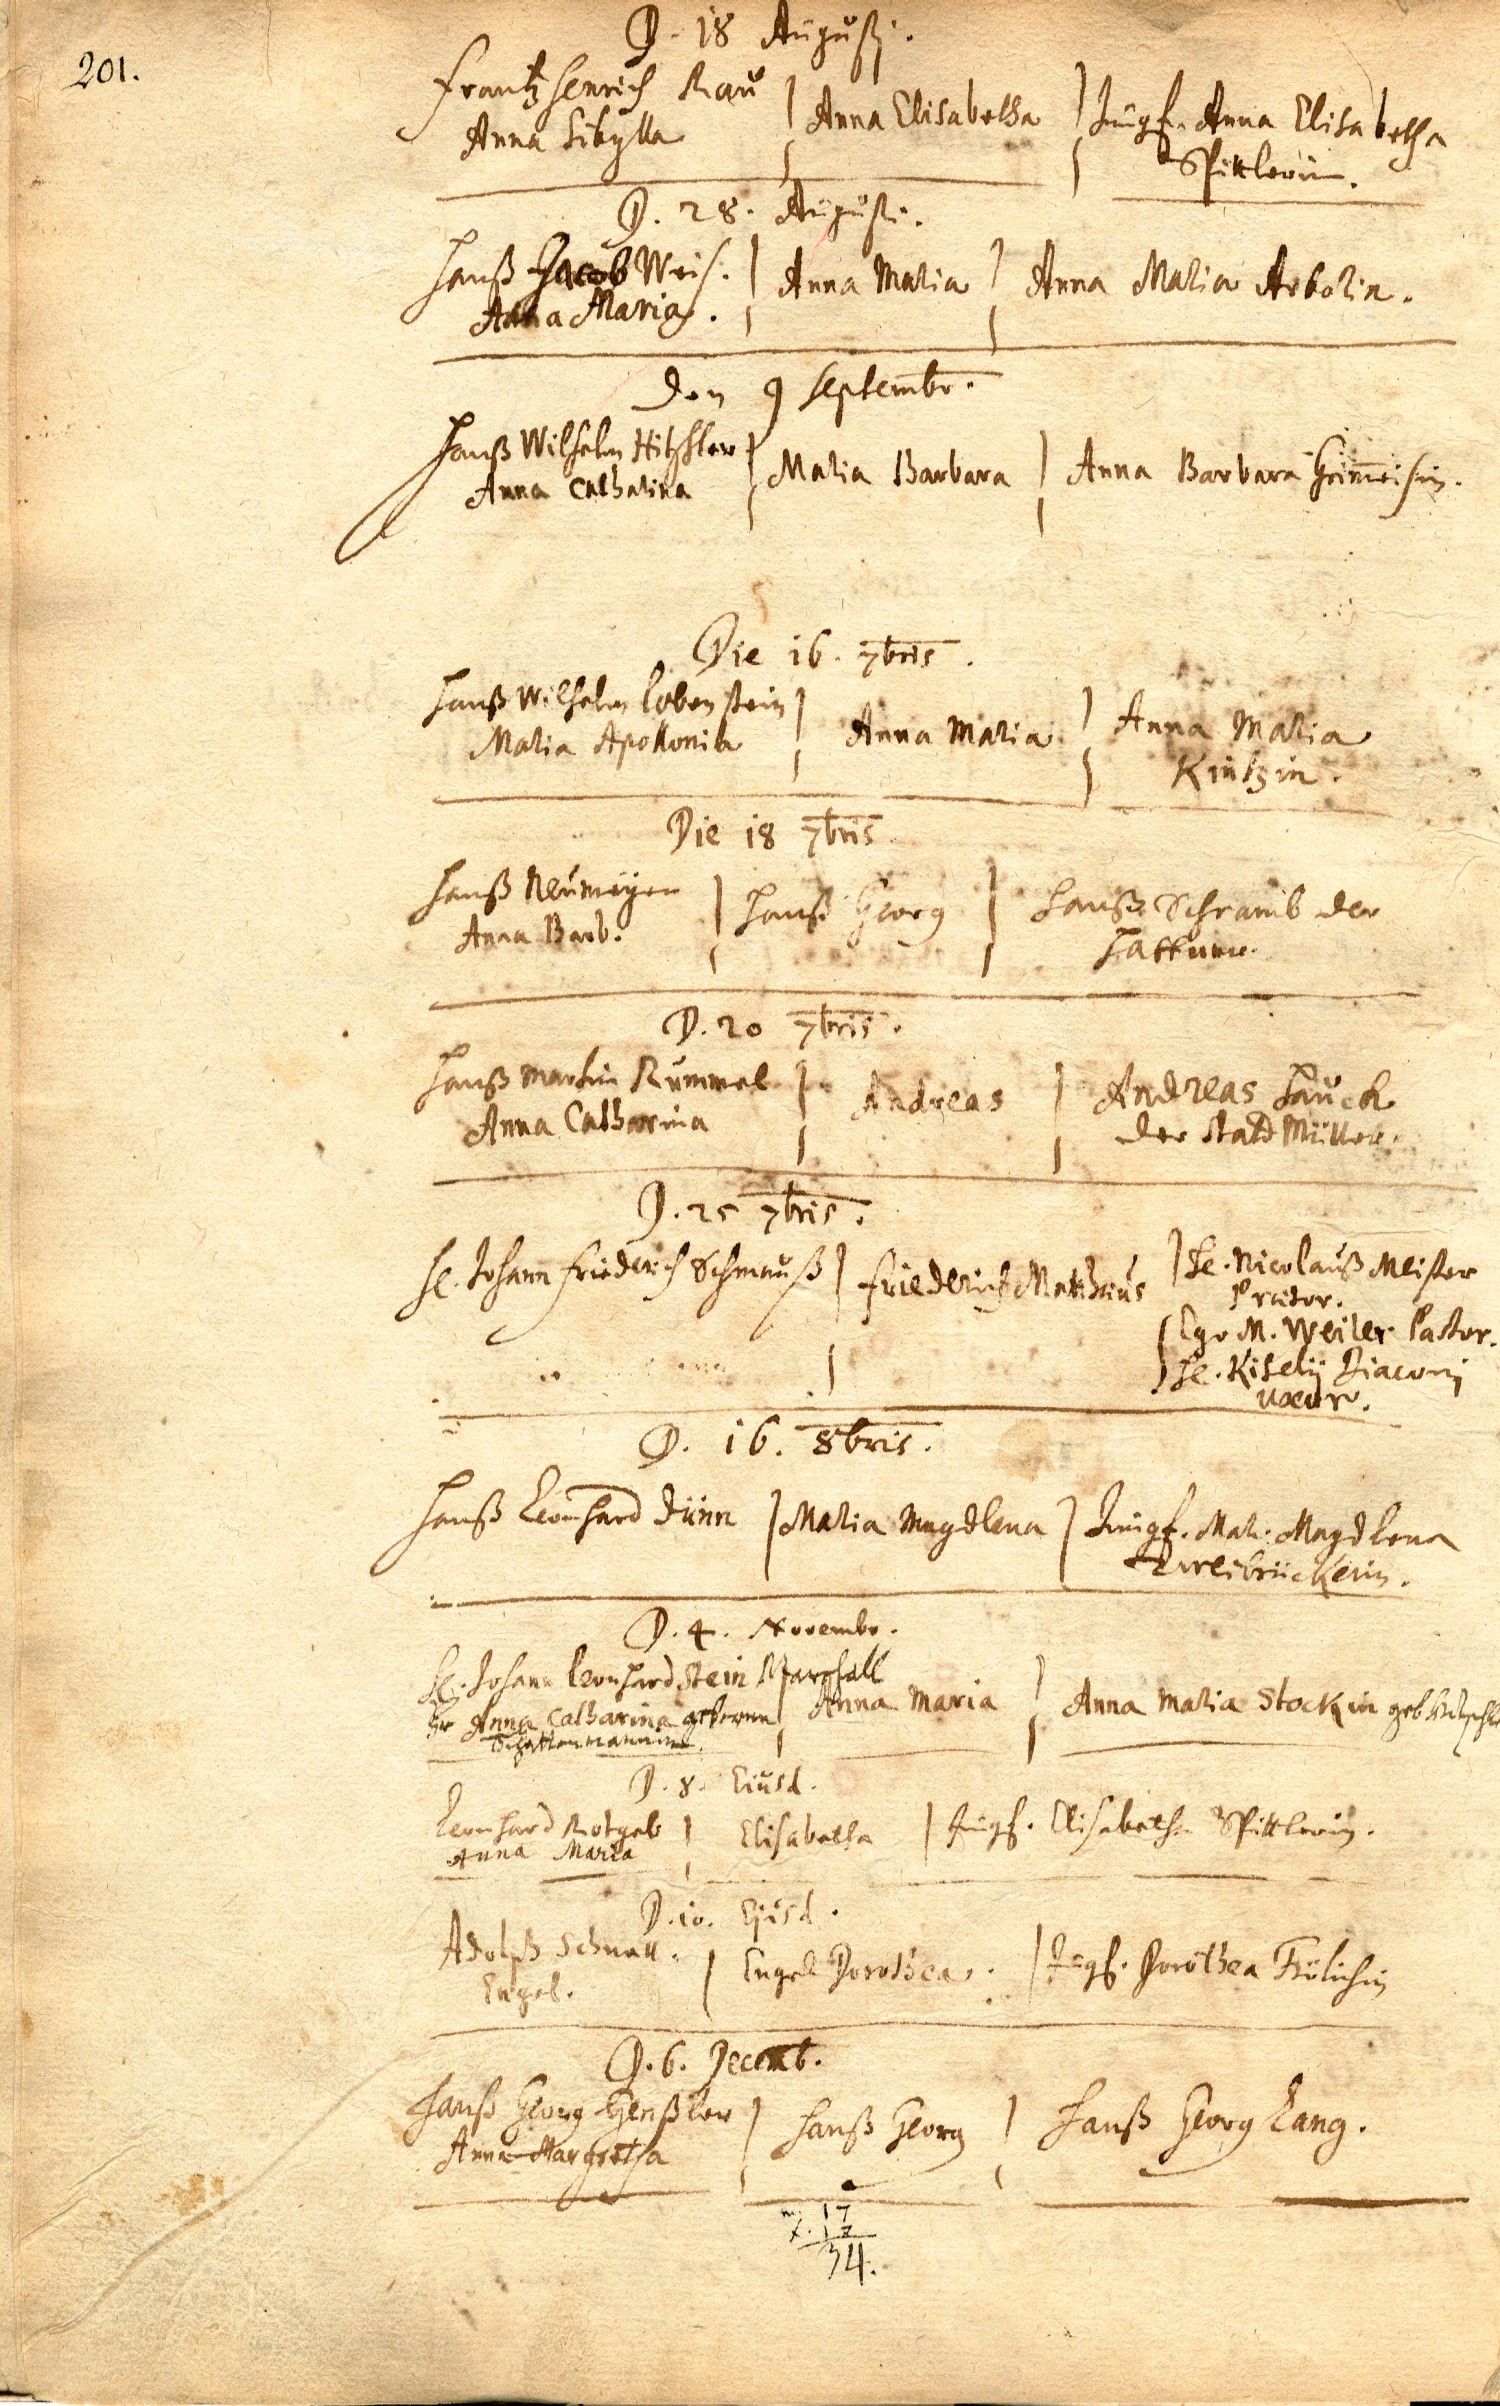 201.
D. 18 Augusti.
Frantz Henrich Rau
Anna Sibylla
Anna Elisabetha
Jungf. Anna Elisabetha
Spittlerin.
D. 28. Augusti.
Hanß Jacob Weis.
Anna Maria.
Anna Maria
Anna Maria Arboin.
Den 9 Septembr.
Hanß Wilhelm
Anna Catharina
Maria Barbara
Anna Barbara
Die 16. 7bris.
Hanß Wilhelm Lobenstein
Maria Apollonia
Anna Maria
Anna Maria
Kintzin.
Die 18 7bris
Hanß Neumeyer
Anna Barb.
Hanß Georg
Hanß Schramb der
D. 20 7bris.
Hanß Martin Rummel
Anna Catharina
Andreas
Andreas Hauck
der Statd Müller.
D. 25 7bris.
He. Johann Friederich Schmauß
Friederich Matthaeus
He. Nicolauß Meister
Praetor.
Ego M. Weiler Pastor.
He. Kiselii Diaconi
uxor.
D. 16. 8bris.
Hanß Leonhard Dünn
Maria Magdlena
Jungf. Mar. Magdlena
Zweibrückerin.
D. 4. Novembr.
He. Johann Leonhard Stein Marschall
Anna Catharina geborne
Schattenmannin.
Anna Maria
Anna Maria Stockin geb.
D. 8. Eiusd.
Leonhard Rotgeb
Anna Maria
Elisabetha
Jungf. Elisabetha Spittlerin.
D. 10. Ejusd.
Adolph Schnell.
Engel.
Engel Dorothea.
Jungf. Dorothea Frölichin
D. 6. Decemb.
Hanß Georg Henßler
Anna Margretha
Hanß Georg
Hanß Georg Lang.
m. 17
f. 17
34.